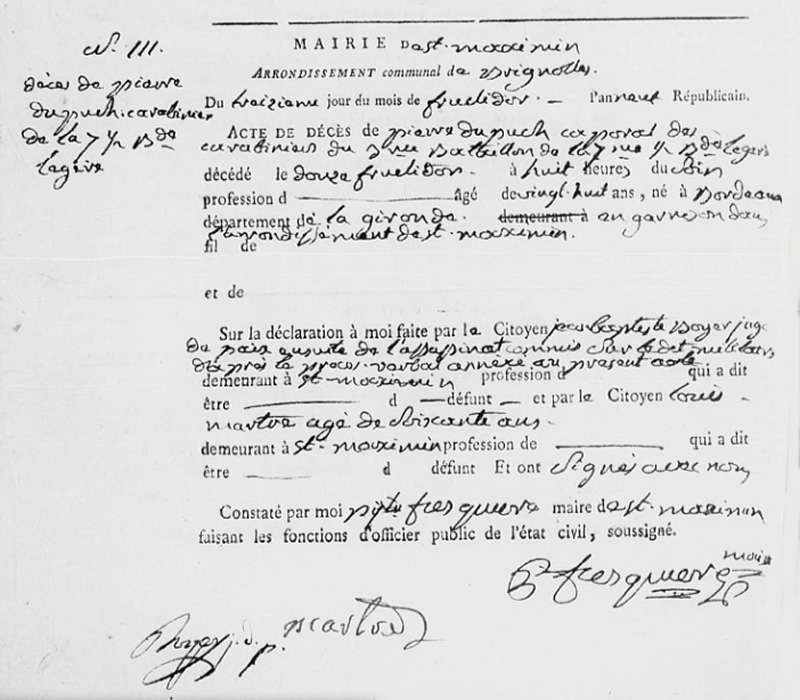 N.° 111.
décès de pierre
dupuch. carabinier
de la 7 1/2 B.de
légère
MAIRIE de st. maximin
ARRONDISSEMENT communal de Brignolles.
Du traizieme jour du mois de fructidor. — l'an neuf Républicain.
ACTE DE DÉCÈS de pierre dupuch caporal des
carabiniers du 3me Bataillon de la 7me 1/2 B.de legere
décédé le douze fructidor. à huit heures du soir
profession d âgé de vingt. huit ans, né à Bordeaux
département de la gironde. demeurant à en garnison dans
l'arrondissement de st. maximin.
fil de
et de
Sur la déclaration à moi faite par le Citoyen jean baptiste Boyer juge
de paix ensuite de l'assasinat commis sur ledet militaire
d'après le proces. verbal annexé au present acte
demeurant à st. maximin profession d qui a dit
être d — défunt — et par le Citoyen louis
martre agé de soixante ans.
demeurant à st. maximin profession de qui a dit
être d défunt Et ont signés avec nous
Constaté par moi fresquiere maire de st. maximin
faisant les fonctions d'officier public de l'état civil, soussigné.
fresquiere maire
Boyer j. d. p. martre